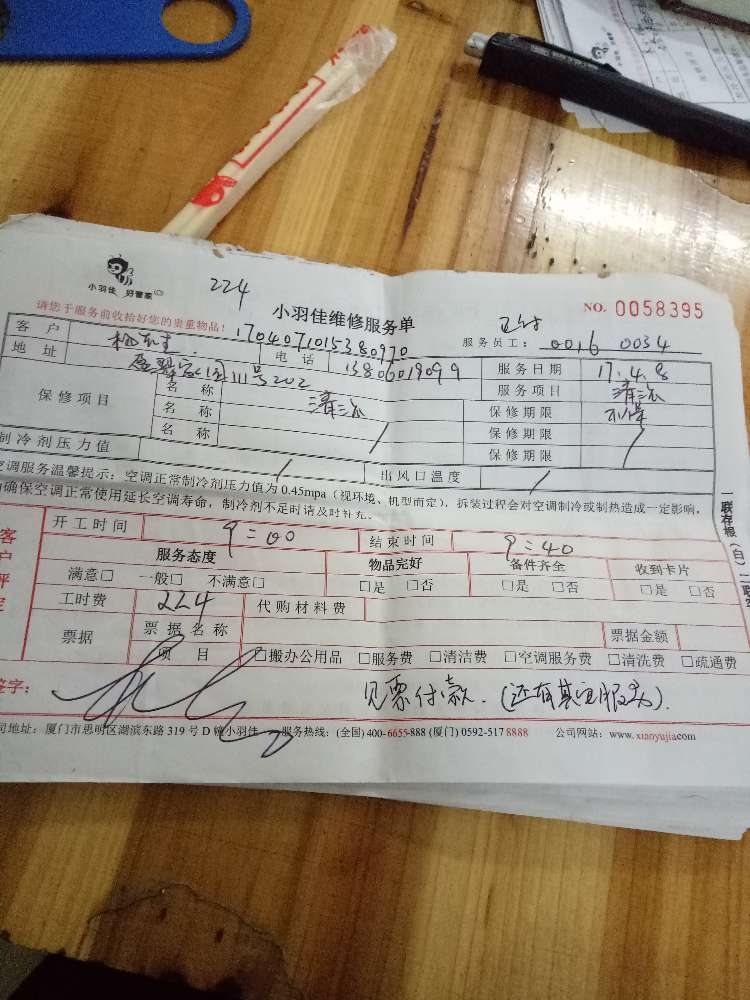 小羽佳 好管家
224
小羽佳维修服务单
NO. 0058395
请您于服务前收拾好您的贵重物品!
1704071015380970
服务员工: 0016 0034
客户
地址 111号202
电话 13806019099
服务日期 17.4.8
服务项目 清洗
保修项目
名称 清洗
保修期限 不保
名称 /
保修期限 /
名称
保修期限
制冷剂压力值 /
出风口温度 /
空调服务温馨提示: 空调正常制冷剂压力值为 0.45mpa (视环境、机型而定), 拆装过程会对空调制冷或制热造成一定影响,
确保空调正常使用延长空调寿命, 制冷剂不足时请及时补充。
一联存根(白)
开工时间 9:00
结束时间 9:40
服务态度
物品完好
备件齐全
收到卡片
满意□ 一般□ 不满意□
□是 □否
□是 □否
□是 □否
工时费 224
代购材料费
票据
票据名称
票据金额
项目
□搬办公用品 □服务费 □清洁费 □空调服务费 □清洗费 □疏通费
签字:
见票付款. (还有其它服务).
司地址: 厦门市思明区湖滨东路 319 号 D 幢小羽佳
服务热线: (全国) 400-6655-888 (厦门) 0592-517 8888
公司网站: www.xiaoyujia.com